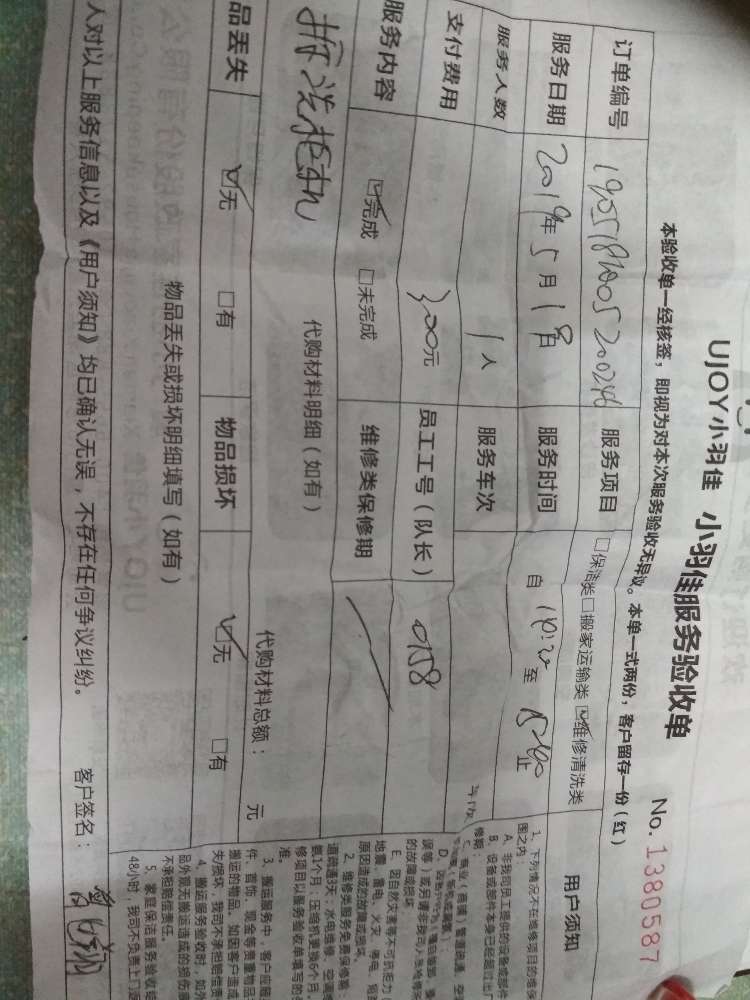 UJOY小羽佳 小羽佳服务验收单
No. 1380587
本验收单一经核签，即视为对本次服务验收无异议。本单一式两份，客户留存一份（红）
订单编号
服务项目 □保洁类□搬家运输类☑维修清洗类
服务日期 2019年5月18日 服务时间 自 至 止
服务人数 1人 服务车次
支付费用 300元 员工工号（队长） 0158
服务内容 ☑完成 □未完成 维修类保修期
拆洗柜机
代购材料明细（如有）
代购材料总额： 元
品丢失 ☑无 □有 物品损坏 ☑无 □有
物品丢失或损坏明细填写（如有）
人对以上服务信息以及《用户须知》均已确认无误，不存在任何争议纠纷。 客户签名：
用户须知
1、下列情况不在维修项目的维保
围之内：
A、非我司员工提供的设备或部件
B、设备或部件本身已经超出厂
修期；
E、因自然灾害等不可抗拒力（
地震、雷电、火灾、停电、短
原因造成的故障或损坏。
2、维修类服务免费保修期：
道疏通5天；水电维修、空调
氨1个月，压缩机更换6个月。
修项目以服务验收单填写的
准
3、搬运服务中，客户应随
件、首饰、现金等贵重物品
搬运的物品。如因客户造成
失/损坏，我司不承担赔偿责
4、搬运服务验收时，如外
品外观无搬运造成的损伤
不承担赔偿责任。
5、家庭保洁服务验收
48小时，我司不负责上门返